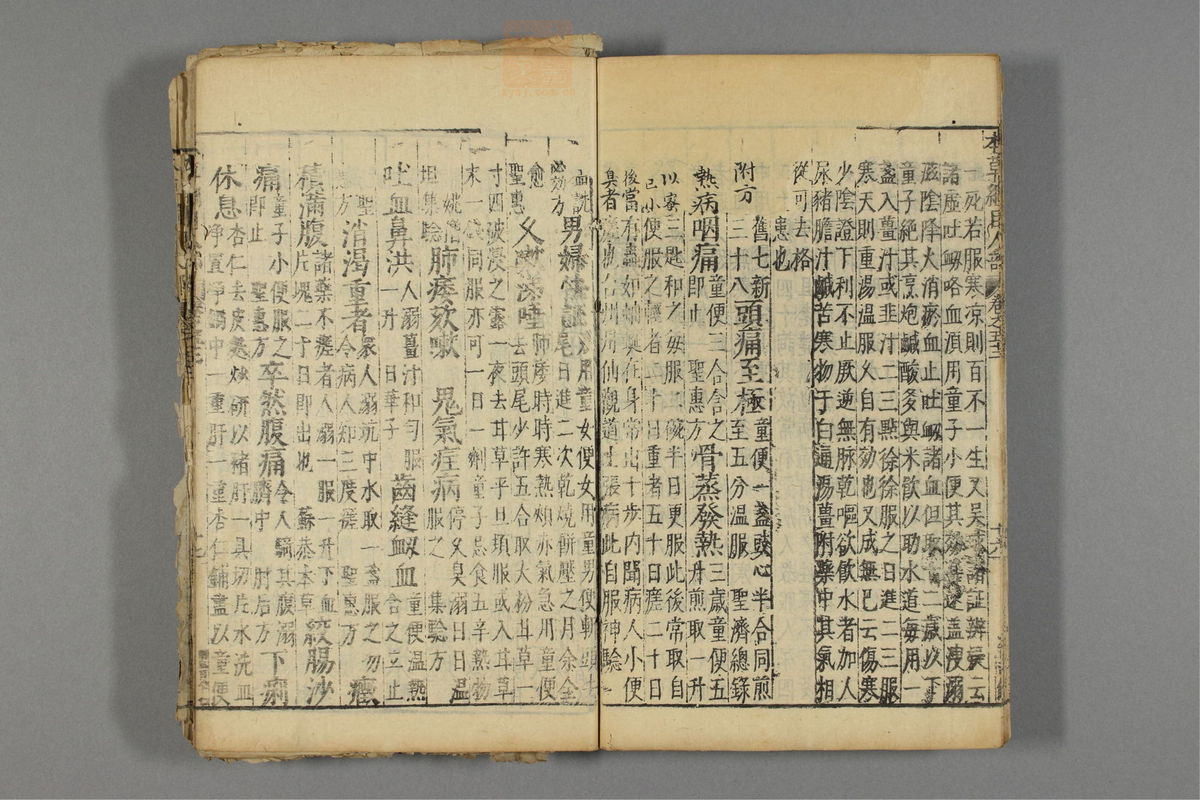 本草綱目人部 卷之五十二
死若服寒凉則百不一生又吳 諸証辨 云
諸虛吐衂咯血須用童子小便其効甚速蓋溲溺
滋陰降火消瘀血止吐衂諸血但取十二歲以下
童子絕其烹炮鹹酸多與米飲以助水道每用一
盞入薑汁或韭汁二三點徐徐服之日進二三服
寒天則重湯温服久自有効也又成無己云傷寒
少陰證下利不止厥逆無脉乾嘔欲飲水者加人
尿豬膽汁鹹苦寒物于白通湯薑附藥中其氣相
從可去格
患也
附方
舊七新
三十八
頭痛至極
童便一盞豉心半合同煎
至五分温服 聖濟總錄
熱病咽痛
童便三合含之
即止 聖惠方
骨蒸發熱
三歲童便五
升煎取一升
以蜜三匙和之每服二碗半日更服此後常取自
己小便服之輕者二十日重者五十日瘥二十日
後當有蟲如蚰蜒在身常出十步内聞病人小便
臭者 台州丹仙觀道士張病此自服神驗
男婦怯証
男用童女便女用童男便斬頭去
尾日進二次乾燒餅壓之月余全
愈
聖惠
久嗽涕唾
肺痿時時寒熱頰赤氣急用童便
去頭尾少許五合取大粉甘草一
寸四破浸之露一夜去甘草平旦頓服或入甘草
末一錢同服亦可一日一劑童子忌食五辛熱物
姚
坦集驗
肺痿欬嗽
鬼氣疰病
停久臭溺日日温
服之 集驗方
吐血鼻洪
人溺薑汁和勻服
一升 日華子
齒縫衂血
童便温熱
含之立止
聖惠
方
消渴重者
眾人溺坑中水取一盞服之勿
令病人知三度瘥 聖惠方
癥
積滿腹
諸藥不瘥者人溺一服一升下血
片塊二十日即出也 蘇恭本草
絞腸沙
痛
童子小便服之
即止 聖惠方
卒然腹痛
令人騎其腹溺
臍中 肘后方
下痢
休息
杏仁去皮 炒研以豬肝一具切片水洗血
淨置淨鍋中一重肝一重杏仁鋪盡以童便